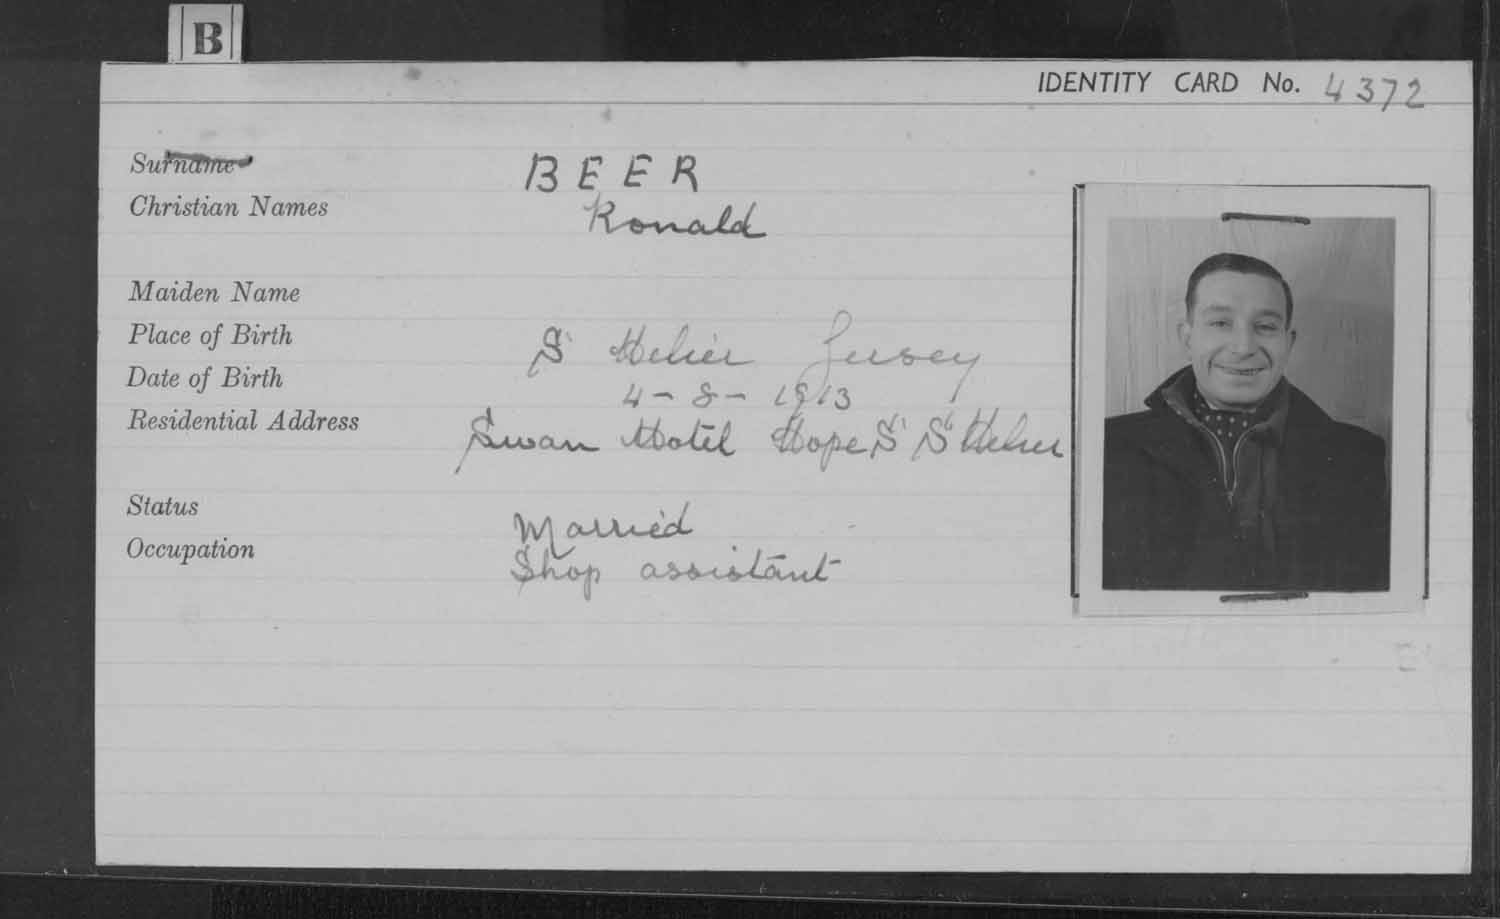 B
IDENTITY CARD No. 4372
Surname BEER
Christian Names Ronald
Maiden Name
Place of Birth St Helier Jersey
Date of Birth 4-8-1913
Residential Address Swan Hotel Hope St St Helier
Status Married
Occupation Shop assistant